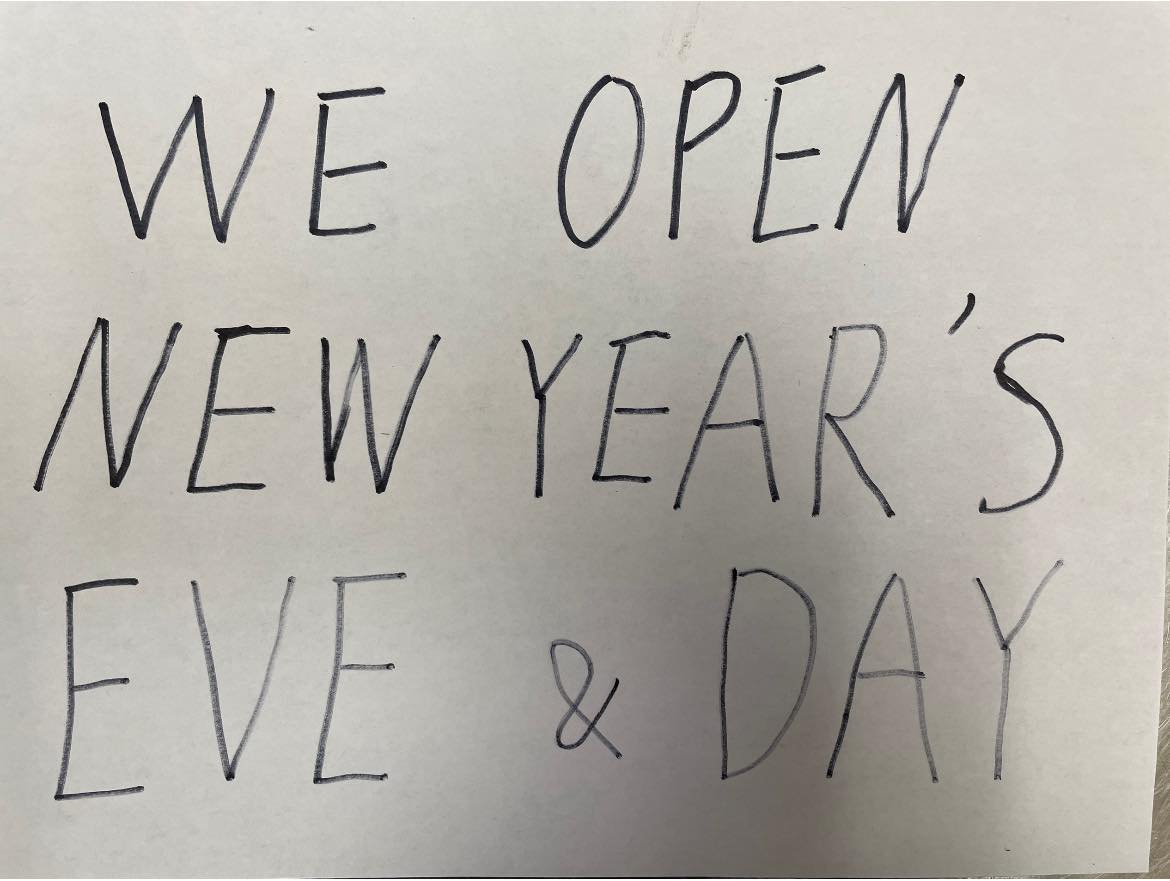 WE OPEN
NEW YEAR'S
EVE & DAY